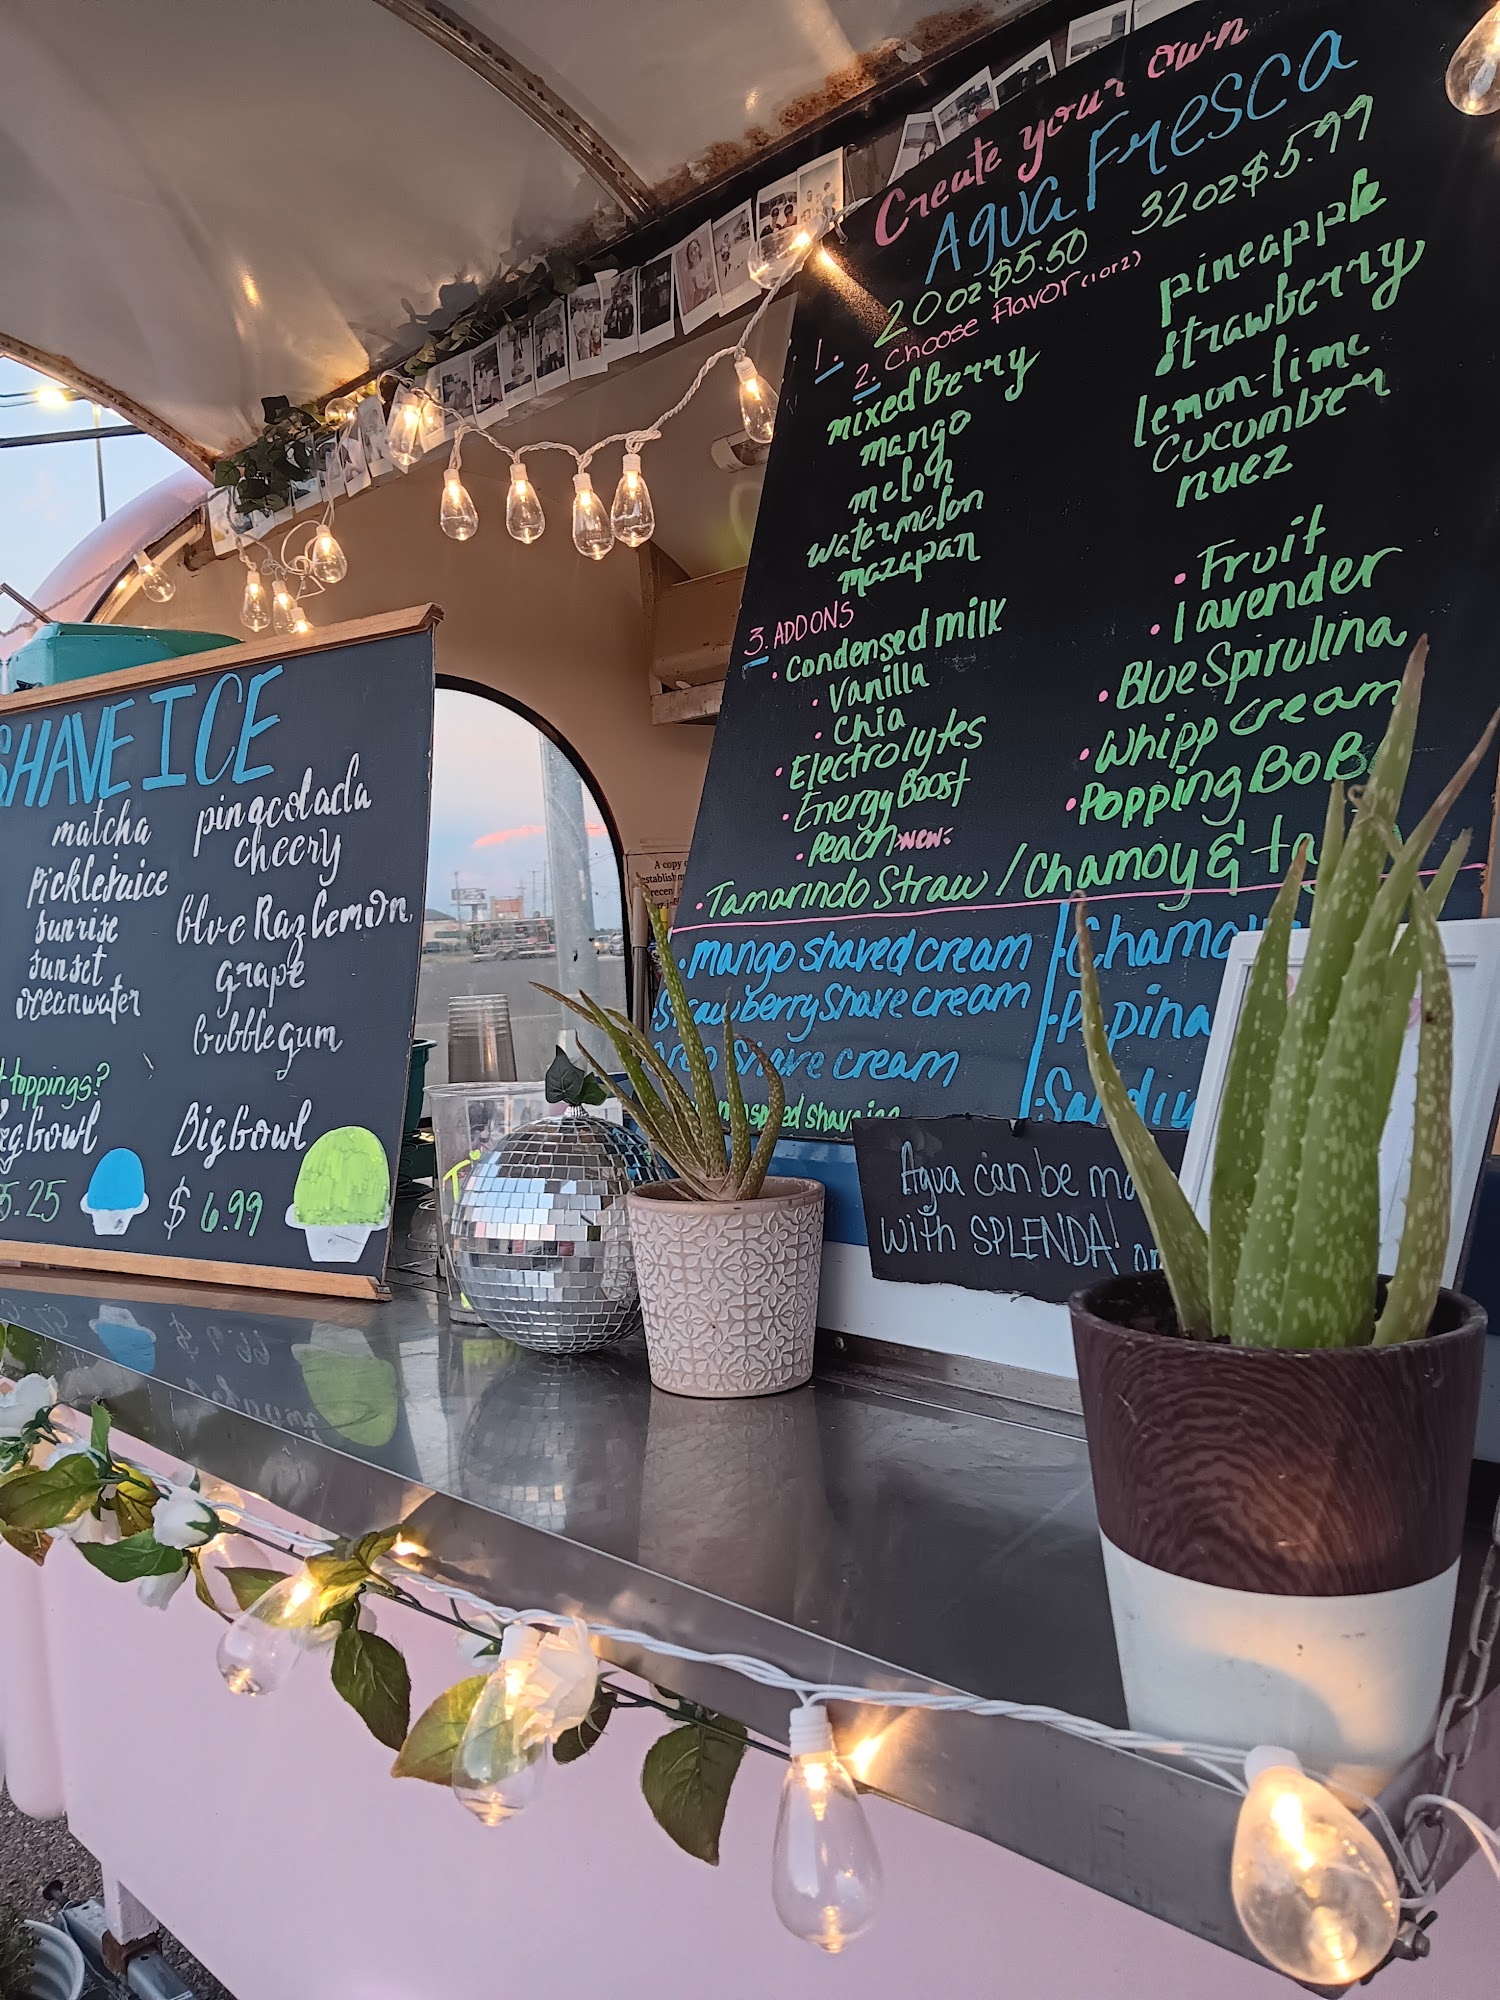 SHAVE ICE
matcha
PickleJuice
sunrise
sunset
oceanwater
pinacolada
cheery
blue Raz Lemon,
grape
bubblegum
toppings?
bowl
5.25
Big bowl
$ 6.99
Create your own
Agua Fresca
1. 20oz $5.50 32oz $5.99
2. Choose flavor (1 or 2)
mixed berry
mango
melon
watermelon
mazapan
pineapple
strawberry
lemon-lime
cucumber
nuez
3. ADDONS
• Condensed milk
• Vanilla
• Chia
• Electrolytes
• Energy Boost
• Peach NEW:
• Fruit
• lavender
• Blue Spirulina
• Whipp cream
• Popping BoBa
• Tamarindo Straw / Chamoy &
• mango shaved cream
strawberry shave cream
shave cream
shave ice
Agua can be
with SPLENDA!
A copy